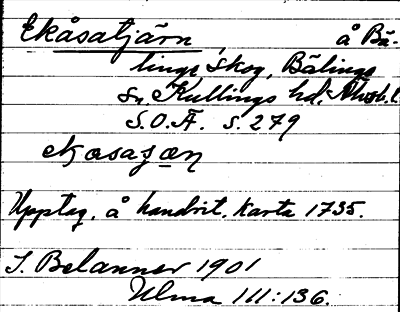 Ekåsatjärn, å Bä-
lings skog, Bälings
sn, Kullings hd, Älvsb. l.
S.O.Ä. s. 279
ekasajæn
Upptag. å handrit. karta 1735.
S. Belanner 1901
Ulma 111:136.